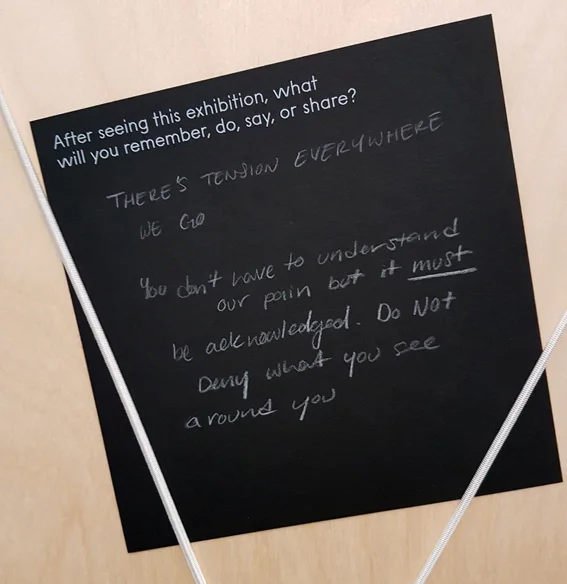 After seeing this exhibition, what
will you remember, do, say, or share?
THERE'S TENSION EVERYWHERE
WE GO
You don't have to understand
our pain but it must
be acknowledged. Do Not
Deny what you see
around you